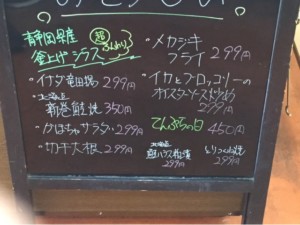 静岡県産
釜上げシラス
・イナダ竜田揚 299円
・北海道
新巻鮭焼 350円
・かぼちゃサラダ・299円
・切干大根・299円
・メカジキ
フライ 299円
・イカとブロッコリーの
オイスターソース炒め
299円
てんぷらの日 450円
北海道
299円
299円